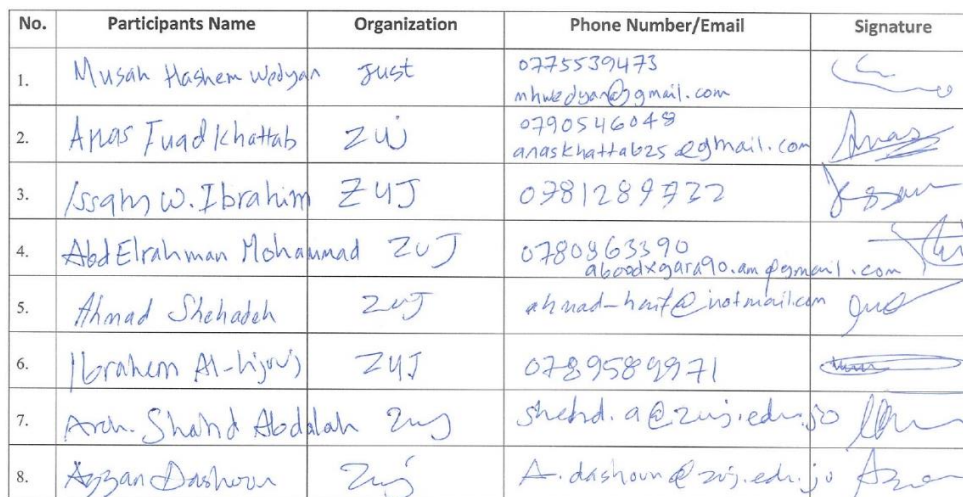 No. Participants Name Organization Phone Number/Email Signature
1. Musah Hashem Wedyan Just 0775539473
mhwedyan@gmail.com
2. Anas Fuad Khattab ZUJ 0790546048
anaskhattab25@gmail.com Anas
3. Issam W. Ibrahim ZUJ 0781289722
4. Abd Elrahman Mohammad ZUJ 0780863390
aboodxgara90.am@gmail.com
5. Ahmad Shehadeh ZUJ ahmad-hait@hotmail.com
6. Ibrahem ZUJ 0789589971
7. Arch. Shahd Abdalah ZUJ shahd.a@zuj.edu.jo
8. Azzan Dashoun ZUJ A.dashoun@zuj.edu.jo